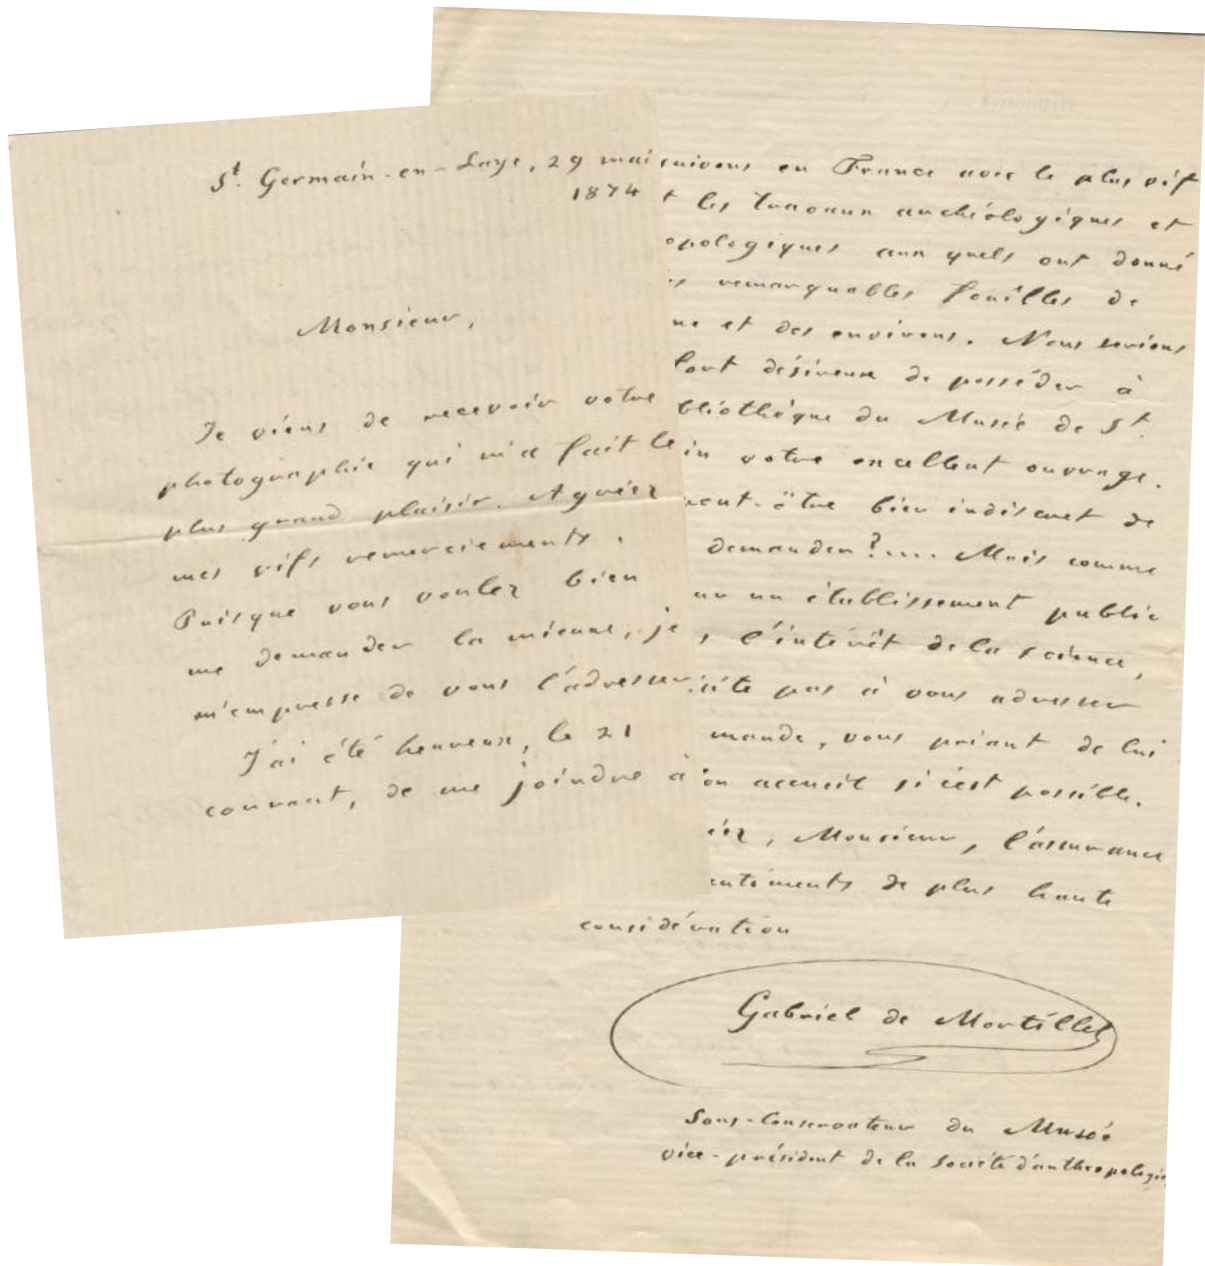 St. Germain-en-Laye, 29 mai
1874
Monsieur,
Je viens de recevoir votre
photographie qui m'a fait le
plus grand plaisir. Agréez
mes vifs remerciements.
Puisque vous voulez bien
me demander la mienne, je
m'empresse de vous l'adresser.
J'ai été heureux, le 21
courant, de me joindre à
suivons en France avec le plus vif
t les travaux archéologiques et
opologiques aux quels ont donné
es remarquables fouilles de
ne et des environs. Nous serions
fort désireux de posséder à
bliothèque du Musée de St.
in votre excellent ouvrage.
peut-être bien indiscret de
demander?.... Mais comme
ur un établissement public
s l'intérêt de la science,
ite pas à vous adresser
mande, vous priant de lui
on accueil si c'est possible.
éez, Monsieur, l'assurance
entiments de plus haute
considération
Gabriel de Mortillet
Sous-Conservateur du Musée
vice-président de la Société d'anthropologie